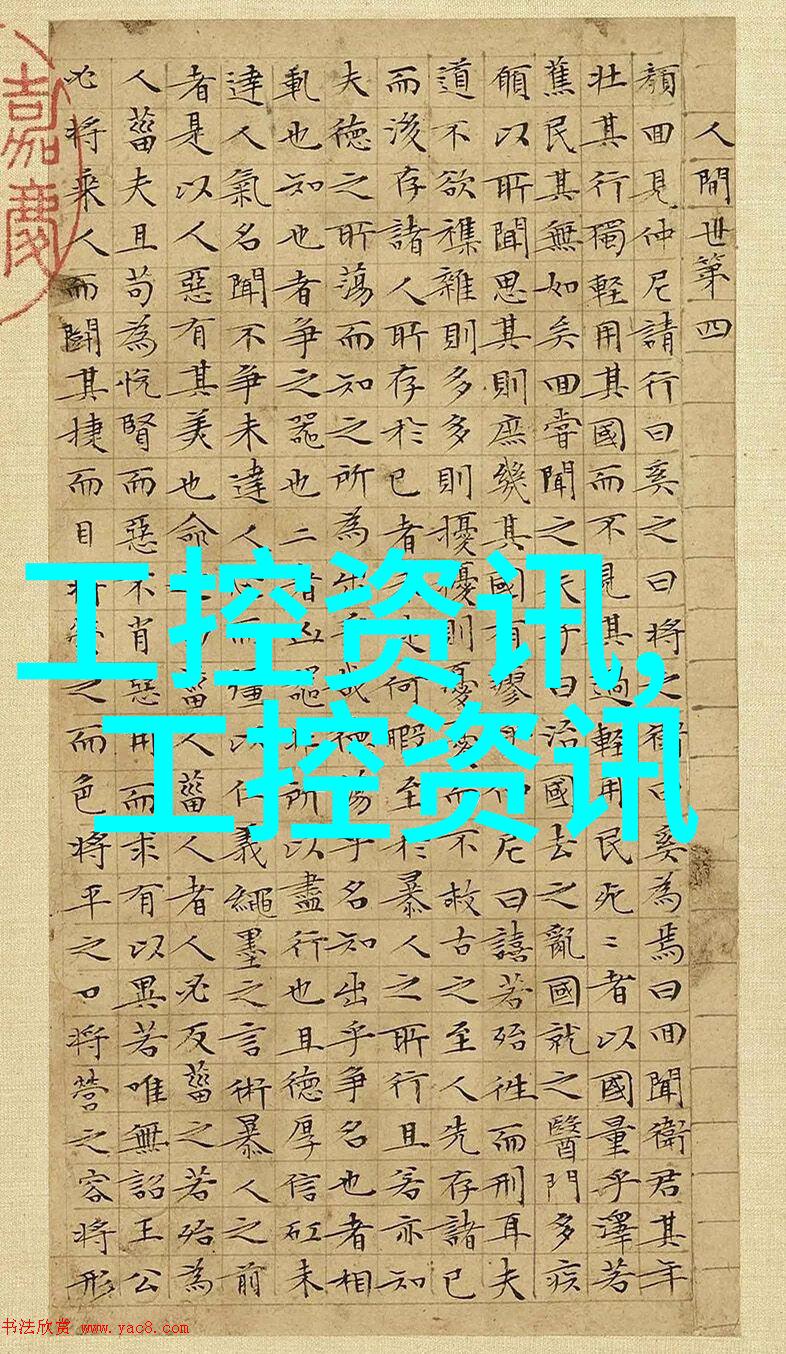 人間世第四
顏回見仲尼請行曰奚之曰將之衛曰奚為焉曰回聞衛君其年
壯其行獨輕用其國而不見其過輕用民死〻者以國量乎澤若
蕉民其無如矣回嘗聞之夫子曰治國去之亂國就之醫門多疾
願以所聞思其則庶幾其國有瘳仲尼曰譆若殆往而刑耳夫
道不欲襍雜則多多則擾擾則憂憂而不救古之至人先存諸已
而後存諸人所存於已者何暇至於暴人之所行且若亦知
夫德之所蕩而知之所為出乎哉德蕩乎名知出乎爭名也者相
軋也知也者爭之器也二者凶器非所以盡行也且德厚信矼未
達人氣名聞不爭未達人而彊以仁義繩墨之言術暴人之前
者是以人惡有其美也命菑人菑人者人必反菑之若殆為
人菑夫且苟為悅賢而惡不肖惡用而求有以異若唯無詔王公
必將乘人而鬪其捷而目將之而色將平之口將營之容將形
嘉慶
工控资讯,
工控资讯
书法欣赏 www.yac8.com